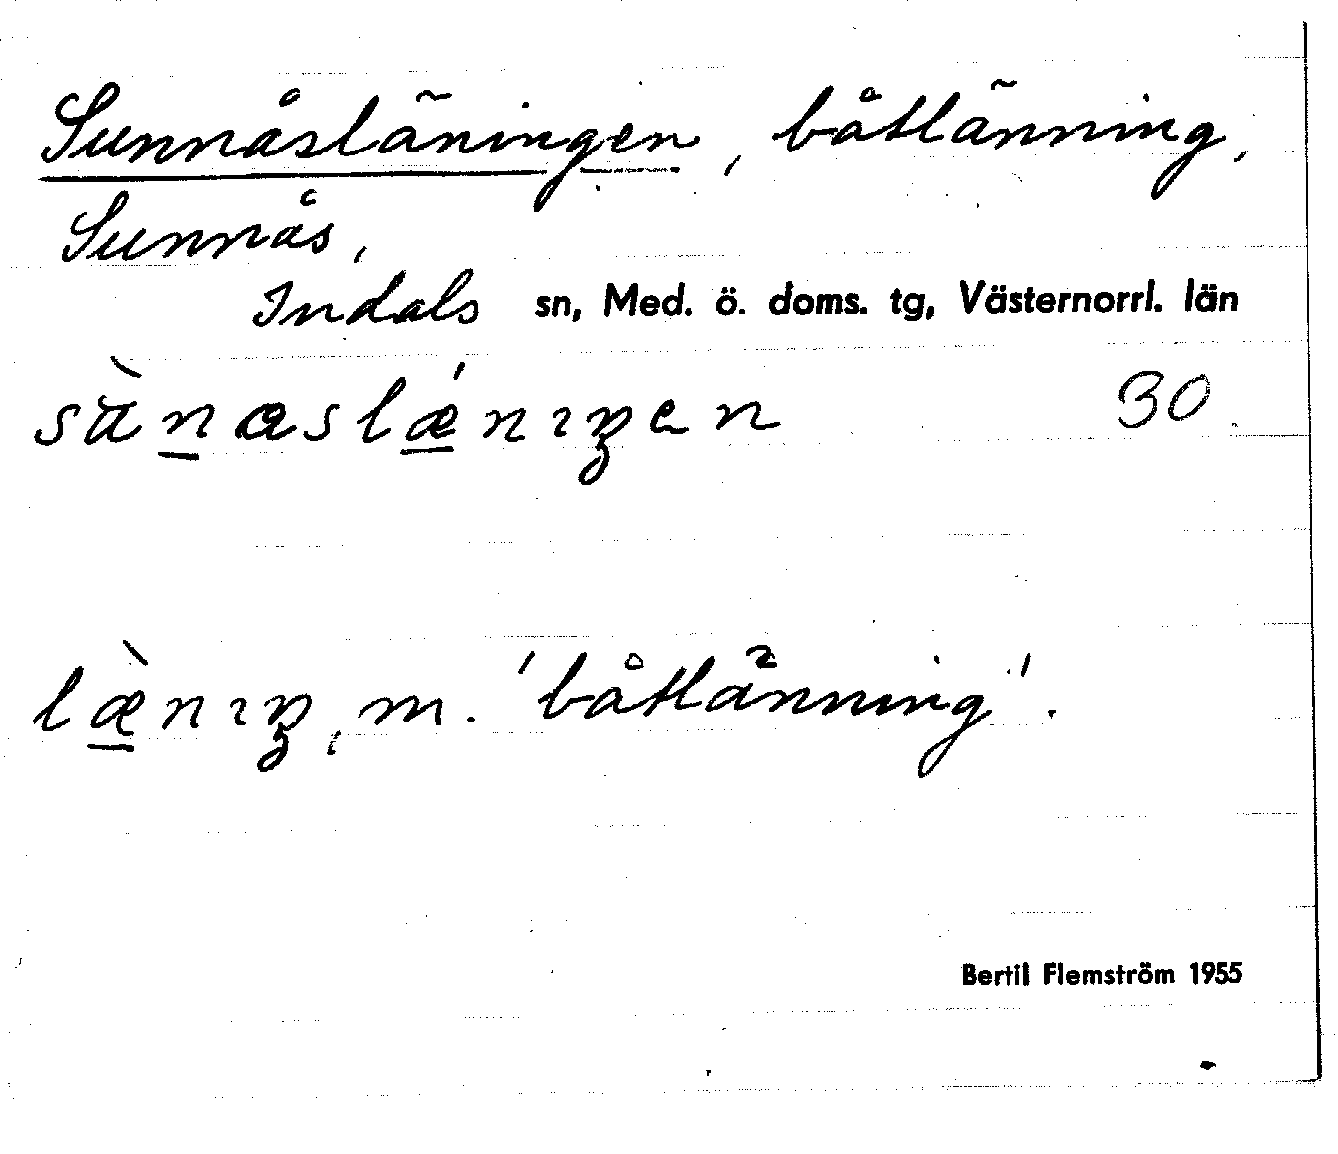 Sunnåsläningen, båtlänning,
Sunnås,
Indals sn, Med. ö. doms. tg, Västernorrl. län
30
læ̀nıŋ, m. 'båtlänning'.
Bertil Flemström 1955